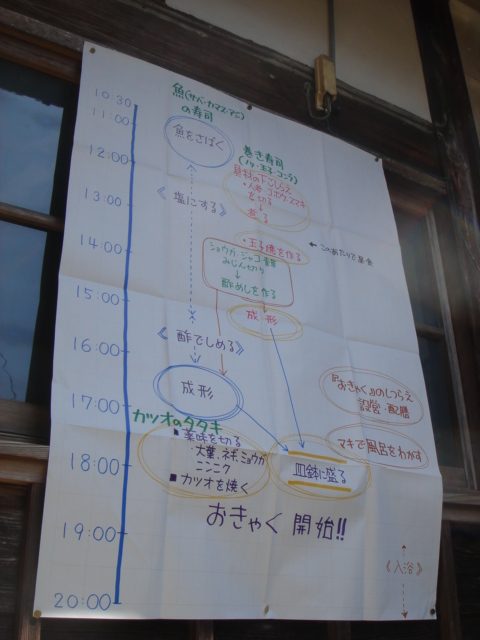 10:30
11:00
12:00
13:00
14:00
15:00
16:00
17:00
18:00
19:00
20:00
魚(サバ・カマス・アジ)
の寿司
魚をさばく
《塩にする》
《酢でしめる》
成形
巻き寿司
(ノリ・玉子・コンブ)
具材の下ごしらえ
を切る
↓
煮る
・玉子焼を作る
ショウガ ジャコ
みじん切り
↓
酢めしを作る
成形
カツオのタタキ
■薬味を切る
・大葉、ネギ、ミョウガ
ニンニク
■カツオを焼く
皿鉢に盛る
『おきゃく』のしつらえ
設営・配膳
マキで風呂をわかす
おきゃく 開始!!
《入浴》